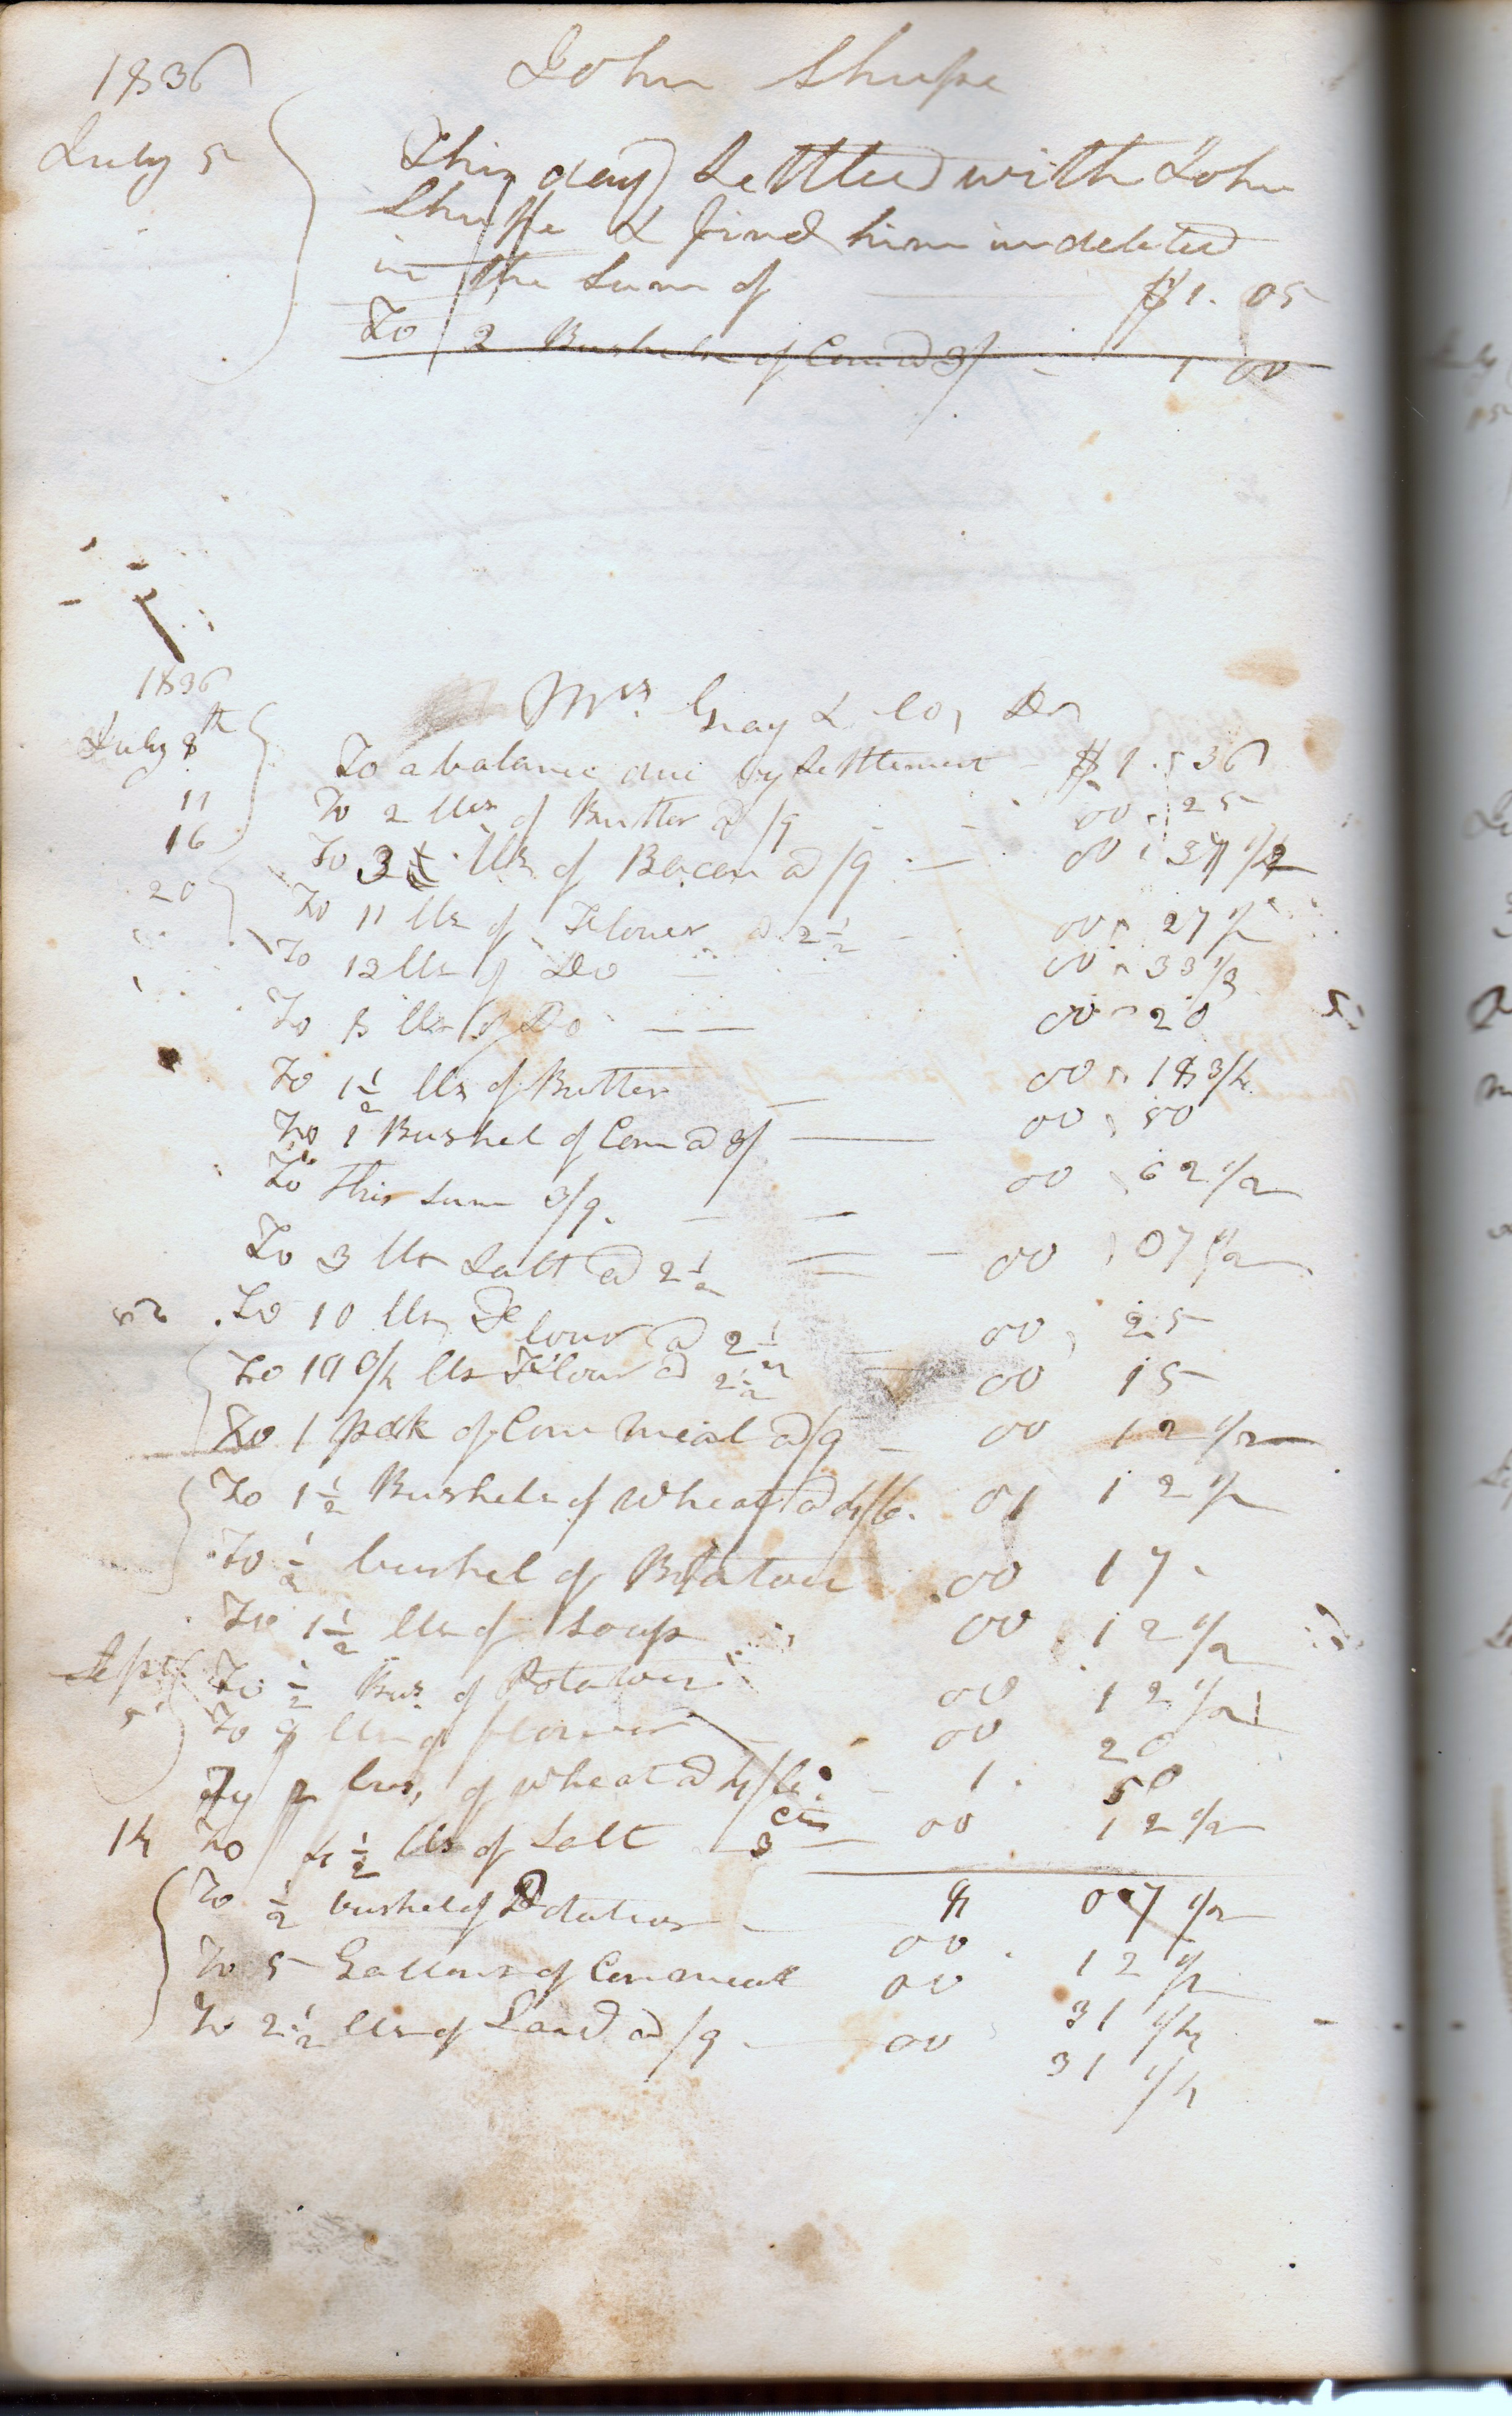 1836
John Shupe
July 5
This day settled with John
Shupe & find him indebted
in the sum of $1. 05
To 2 Bushels of Corn @ 3/ - 1 00
1836
Mrs. Gray & Co, Dr
July 8th To a balance due by settlement - $1. 36
11 To 2 lbs of Butter @ /9 - - 00. 25
16 To 3 lbs of Bacon @ /9 - 00. 37 1/2
20 To 11 lbs of Flouer @ 2 1/2 - 00. 27 1/2
To 13 lbs of Do 00. 33 1/3
To 8 lbs of Do 00 20
To 1 1/2 lbs of Butter 00. 18 3/4
To 1 Bushel of Corn @ 3/ 00, 50
To this sum 3/9. - - 00 62 1/2
To 3 lbs Salt @ 2 1/2 00 07 1/2
To 10 lbs Flour @ 2 1/2 00, 25
lbs Flour @ 2 1/2 00 15
To 1 peck of Corn Meal @ /9 - 00 12 1/2
To 1 1/2 Bushels of Wheat @ 4/6. 01 12 1/2
To 1/2 bushel of Potatoes 00 17
To 1 1/2 lbs of Soap 00 12 1/2
Sept To 1/2 Bus. of Potatoes 00 12 1/2
5 To lbs of flouer 00 20
2 bus, of Wheat @ 4/6. - 1. 50
14 To 4 1/2 lbs of Salt 3 cts 00 12 1/2
07 1/2
To 1/2 bushel of Potatoes - 00. 12 1/2
To 5 Gallons of Cornmeal 00 31 1/4
To 2 1/2 lbs of Lard @ /9 - 00 31 1/4